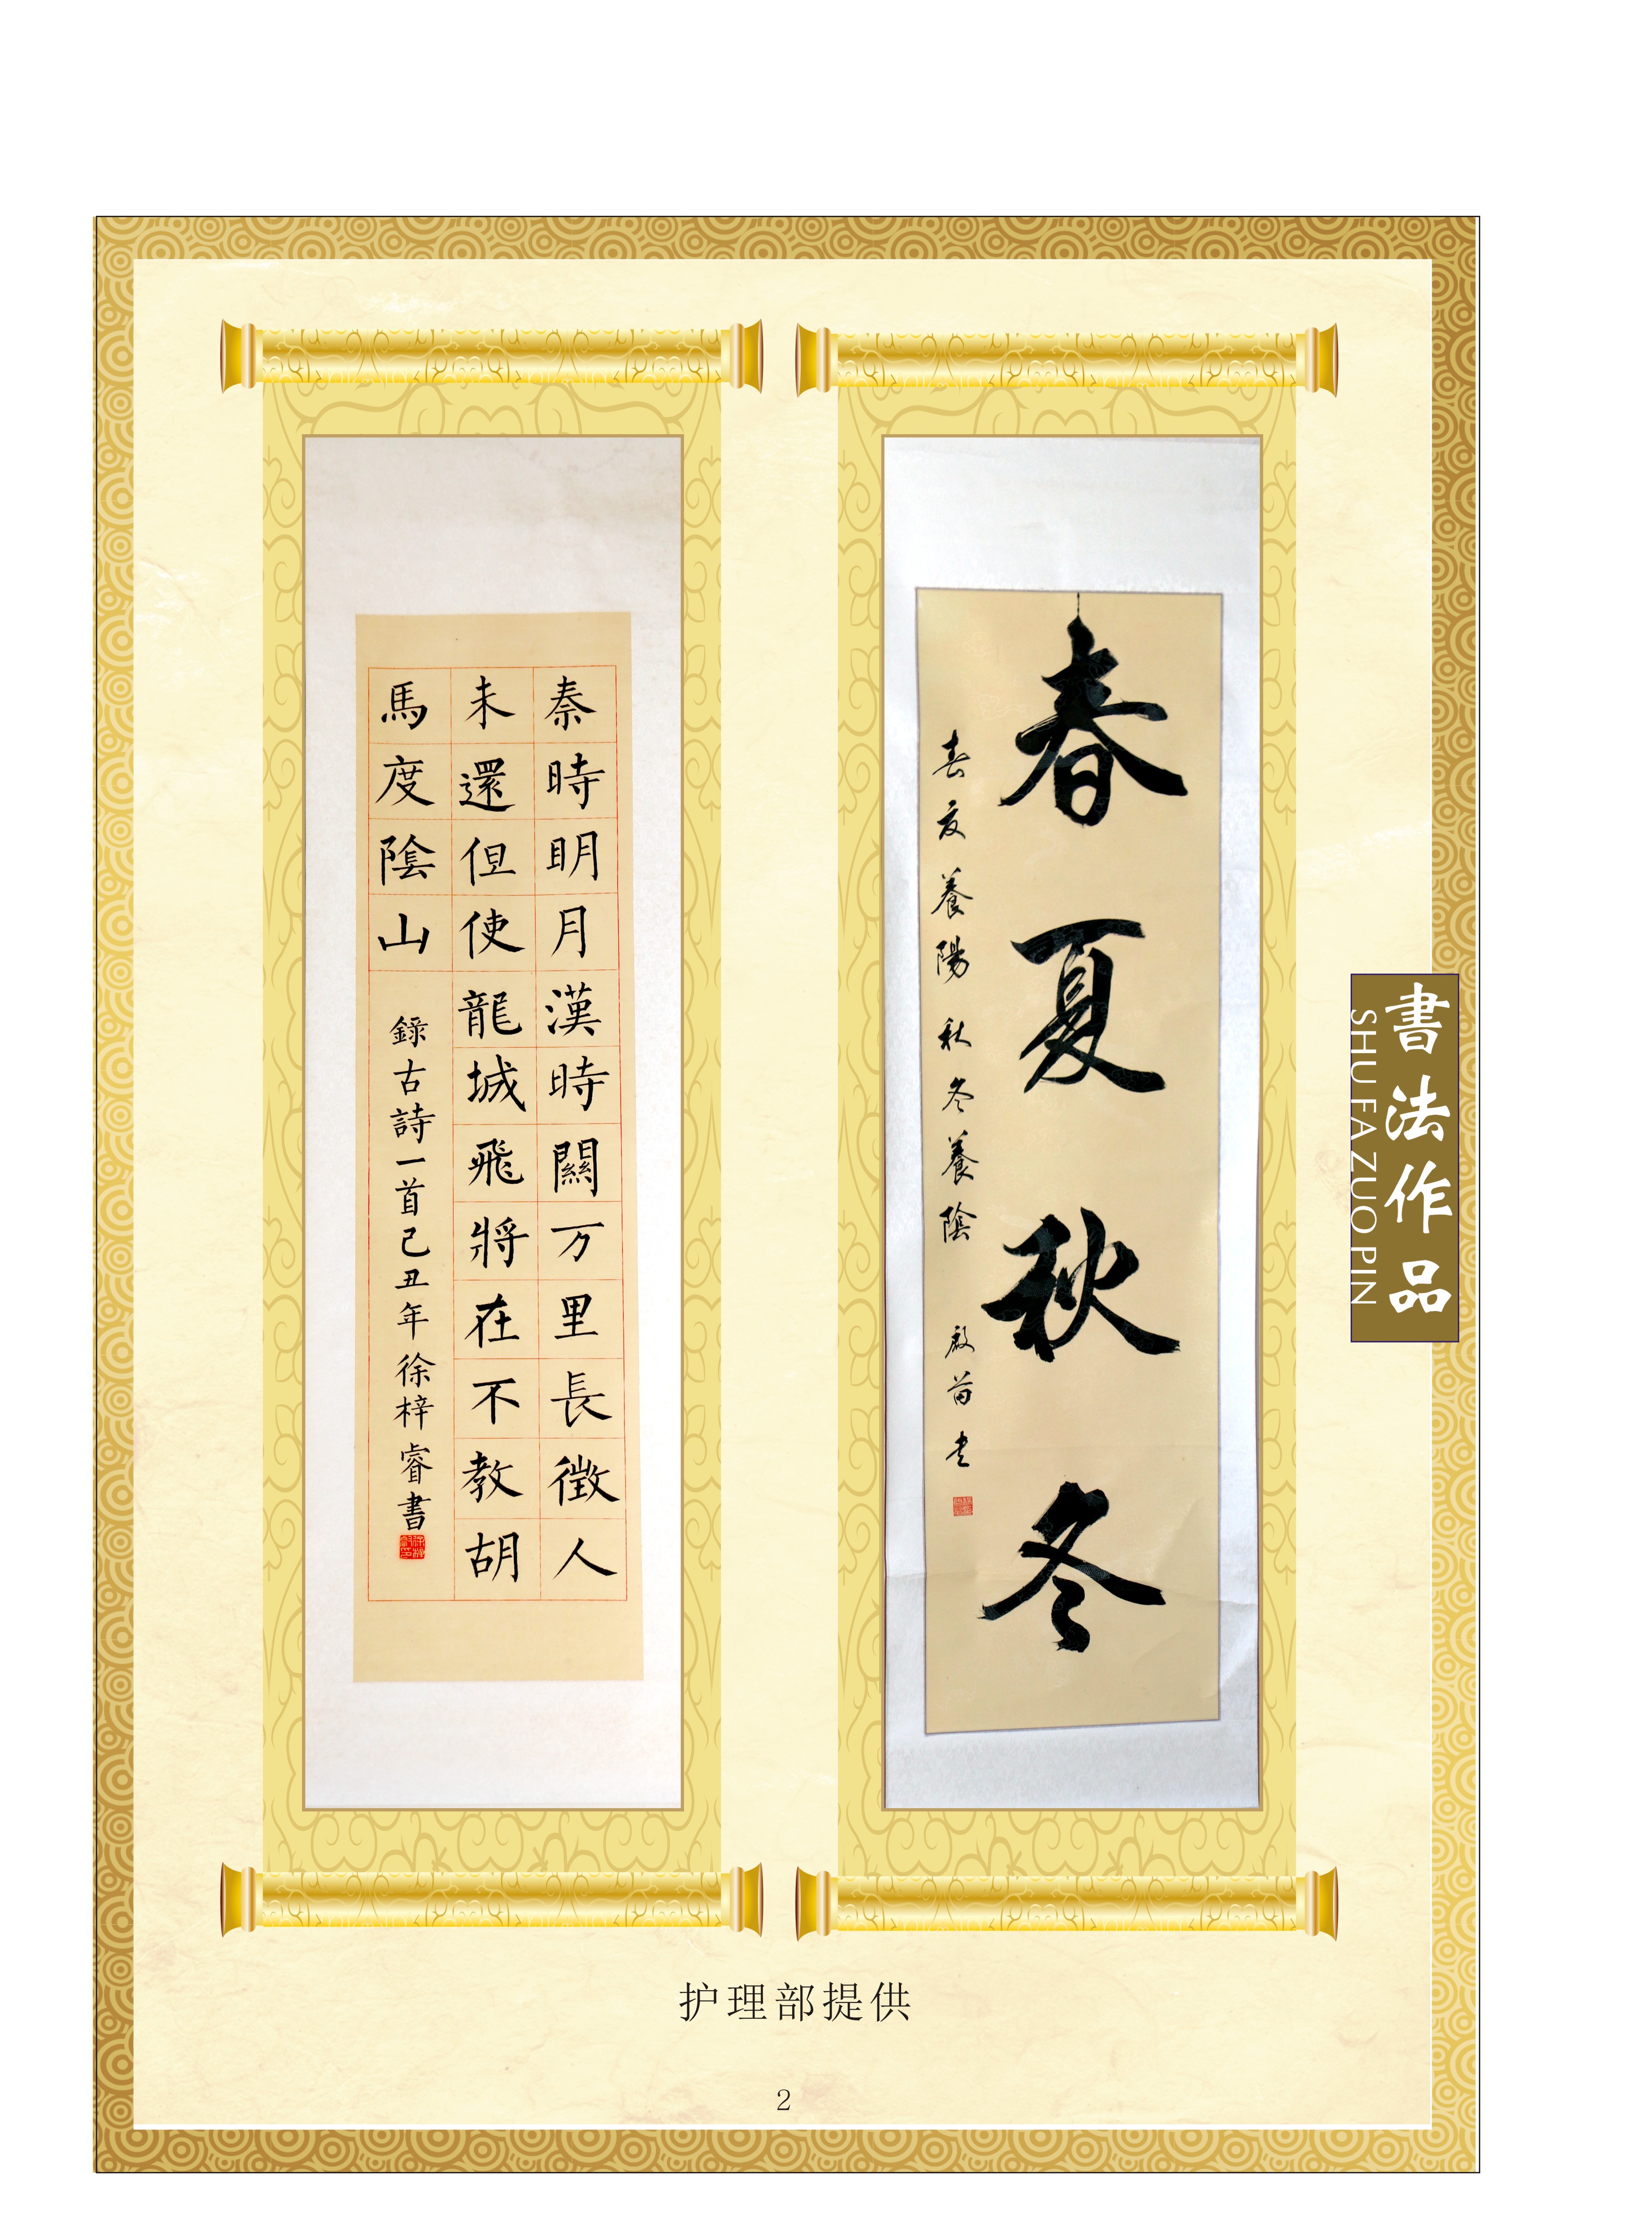 書法作品
SHU FA ZUO PIN
春夏秋冬
春夏養陽 秋冬養陰
秦時明月漢時關万里長徵人
未還但使龍城飛將在不教胡
馬度陰山
錄古詩一首己丑年徐梓睿書
护理部提供
2